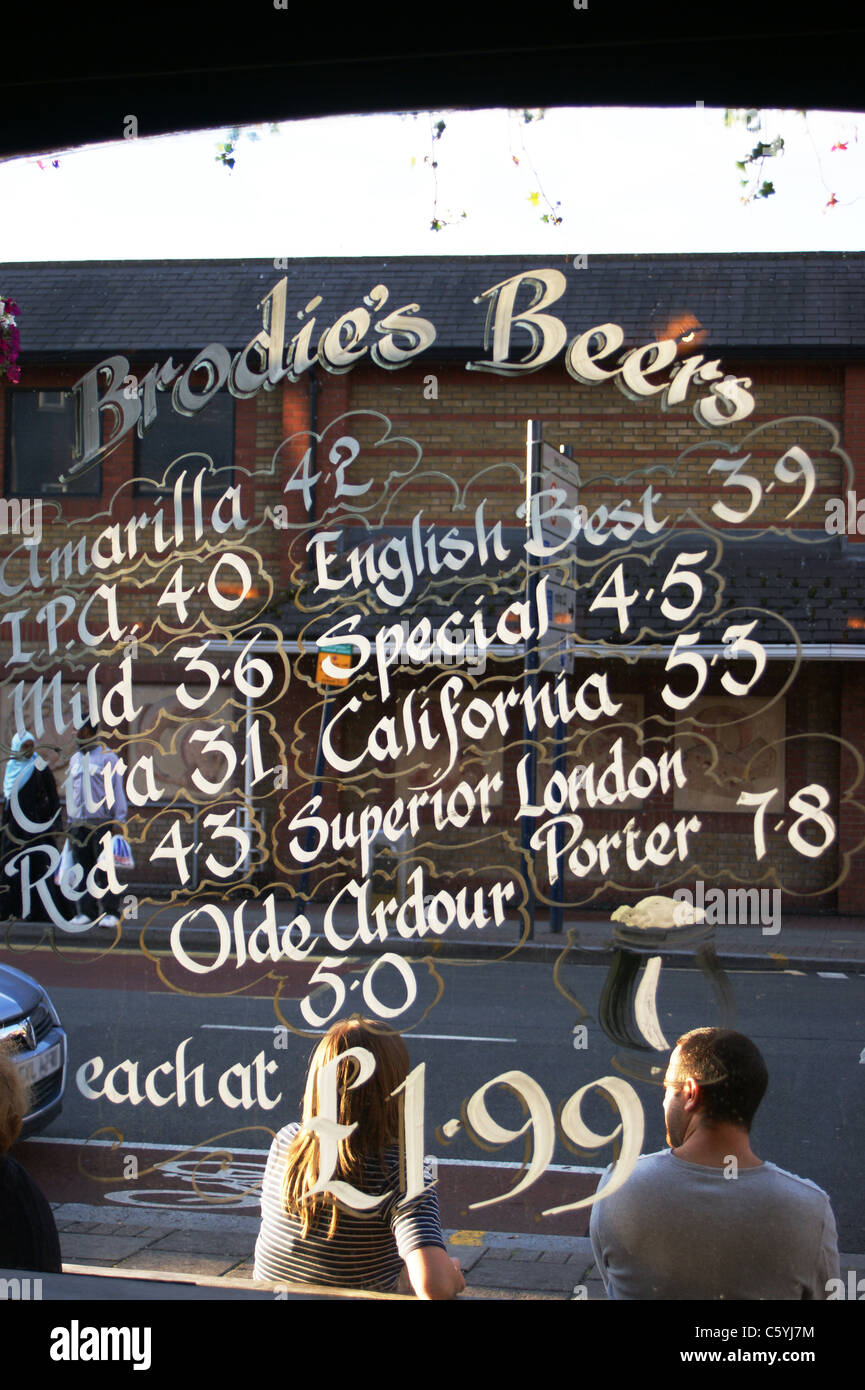 Brodie's Beers
Amarilla 4.2
I.P.A. 4.0
Mild 3.6
Citra 3.1
Red 4.3
English Best 3.9
Special 4.5
California 5.3
Superior London
Porter 7.8
Olde Ardour
5.0
each at £1.99
alamy
Image ID: C5YJ7M
www.alamy.com